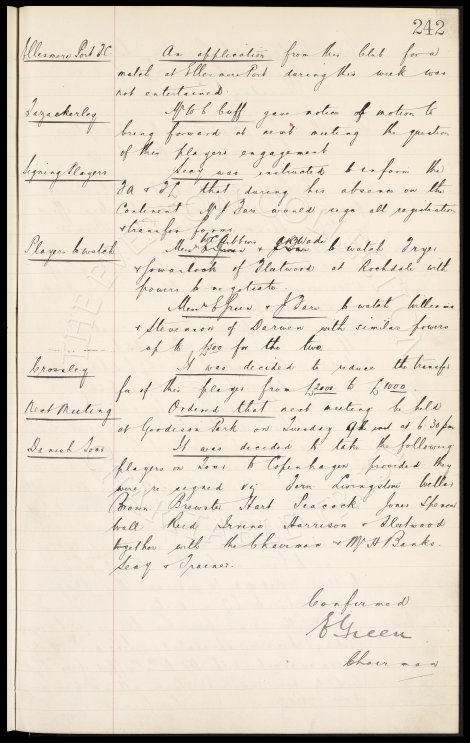 242
Ellesmere Port F.C. An application from this Club for a
match at Ellesmere Port during this week was
not entertained.
Fazackerley Mr W C Cuff gave notice of motion to
bring forward at next meeting the question
of this players engagement
Signing Players Secy was instructed to inform the
FA & FL that during his absence on the
Continent Mr J Fare would sign all registration
& transfer forms
Players to watch Messrs Gibbins & Wade to watch Fryer
& Gowanlock of Fleetwood at Rochdale with
powers to negotiate.
Messrs E Green & J Fare to watch Williams
& Stevenson of Darwen with similar powers
up to £500 for the two
Crossley It was decided to reduce the transfer
fee of this player from £2000 to £1000.
Next Meeting Ordered that next meeting be held
at Goodison Park on Tuesday at 6 30 pm
Danish Tour It was decided to take the following
players on Tour to Copenhagen provided they
were re signed viz Fern Livingstone
Brown Brewster Hart Peacock Jones Spencer
Wall Reid Irvine Harrison & Fleetwood
together with the Chairman & Mr H Banks.
Secy & Trainer.
Confirmed
E Green
Chairman